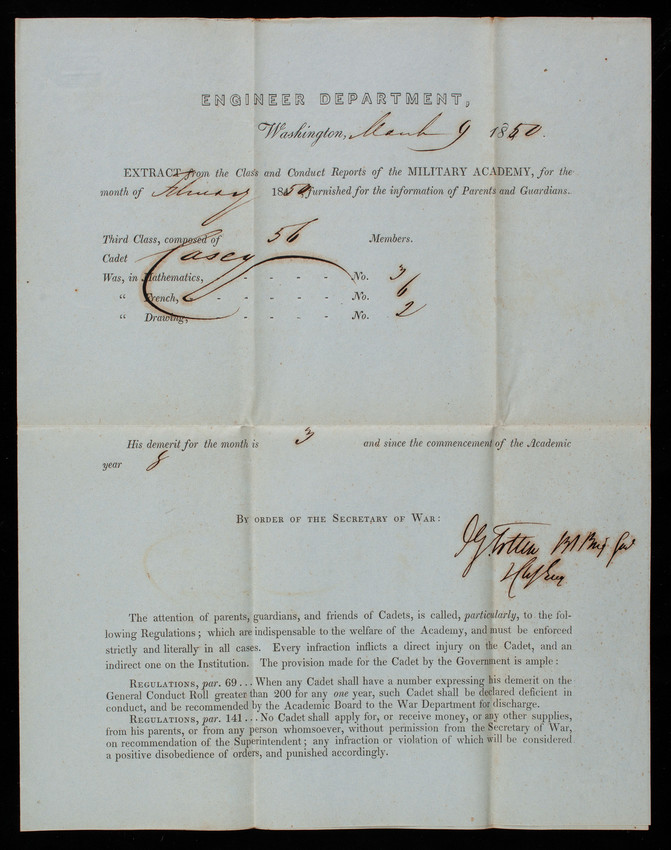 ENGINEER DEPARTMENT,
Washington, March 9 1850.
EXTRACT from the Class and Conduct Reports of the MILITARY ACADEMY, for the
month of February 1850, furnished for the information of Parents and Guardians.
Third Class, composed of 56 Members.
Cadet Casey
Was, in Mathematics, - - - - - No. 3
“ French, - - - - - No. 6
“ Drawing, - - - - - No. 2
His demerit for the month is 3 and since the commencement of the Academic
year 8
BY ORDER OF THE SECRETARY OF WAR:
J G Totten Bt Brig Gen
& Ch Eng
The attention of parents, guardians, and friends of Cadets, is called, particularly, to the fol-
lowing Regulations; which are indispensable to the welfare of the Academy, and must be enforced
strictly and literally in all cases. Every infraction inflicts a direct injury on the Cadet, and an
indirect one on the Institution. The provision made for the Cadet by the Government is ample:
REGULATIONS, par. 69...When any Cadet shall have a number expressing his demerit on the
General Conduct Roll greater than 200 for any one year, such Cadet shall be declared deficient in
conduct, and be recommended by the Academic Board to the War Department for discharge.
REGULATIONS, par. 141...No Cadet shall apply for, or receive money, or any other supplies,
from his parents, or from any person whomsoever, without permission from the Secretary of War,
on recommendation of the Superintendent; any infraction or violation of which will be considered
a positive disobedience of orders, and punished accordingly.